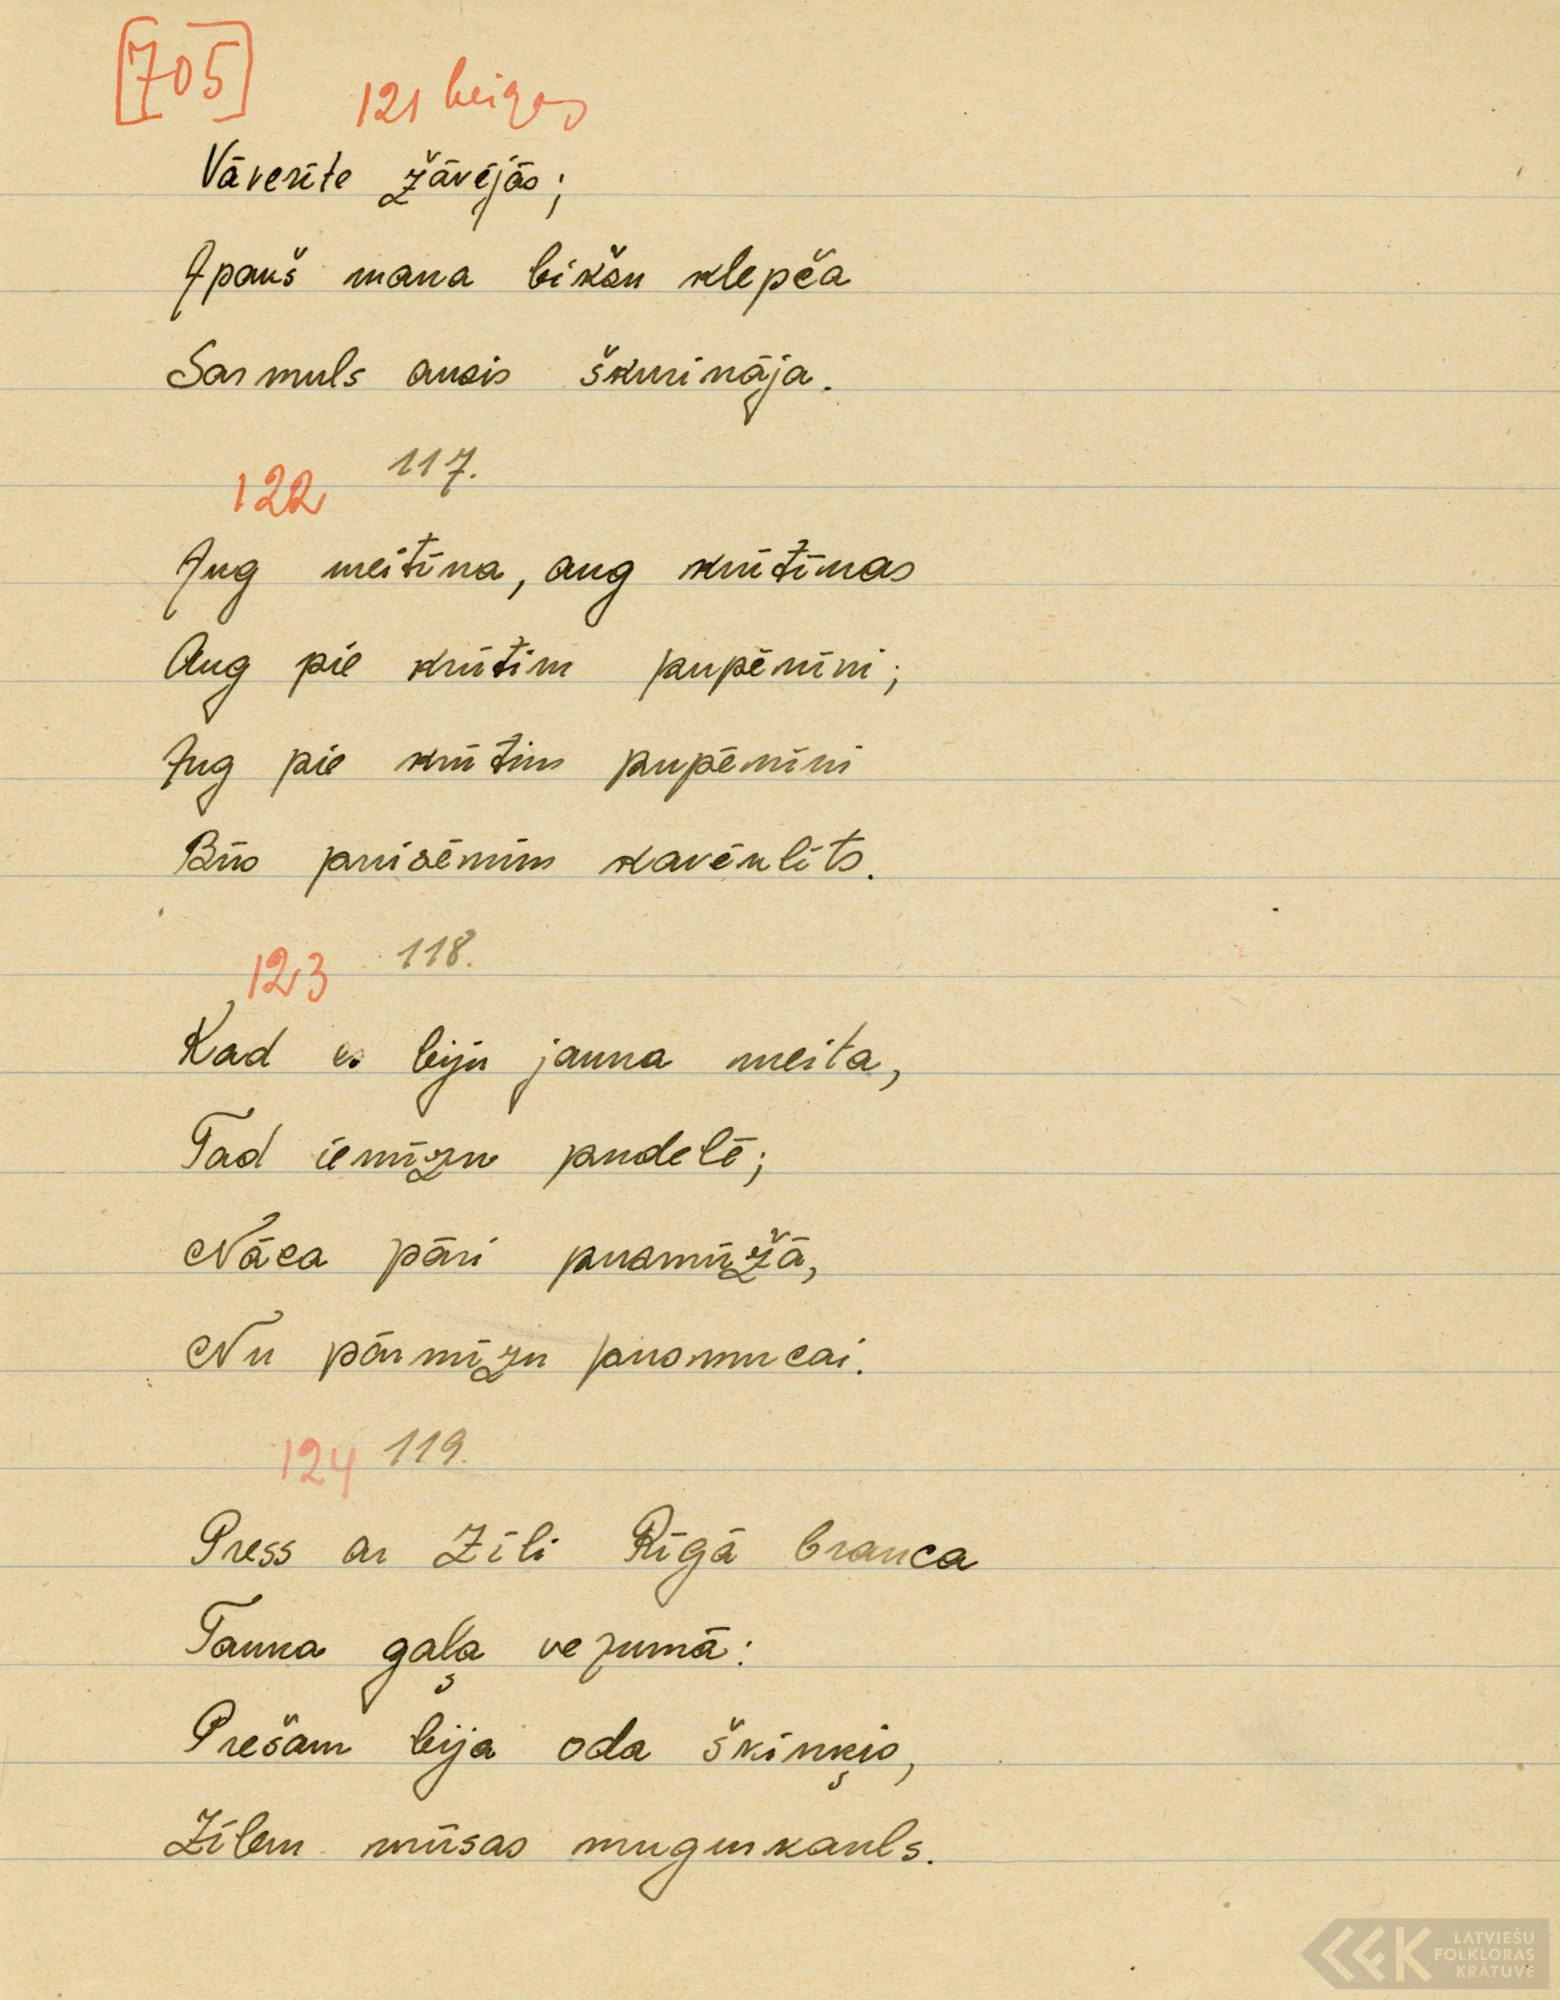 [705] 121 beigas
Vāverīte žāvējās;
Apauš mana bikšu klepča
Sarmuls ausis škurināja.
122 117.
Aug meitiņa, aug krūtīnas
Aug pie krūtim pupēnīni;
Aug pie krūtim pupēnīni
Būs puisēnim kavēklīts.
123 118.
Kad es biju jauna meita,
Tad iemīzu pudelē;
Nāca pāri pusmūžā,
Nu pārmīzu pusmucai.
124 119.
Press ar Zīli Rīgā brauca
Tauka gaļa vezumā:
Prešam bija oda šķiņķis,
Zīlem mūsas mugurkauls.
LATVIEŠU
FOLKLORAS
KRĀTUVE